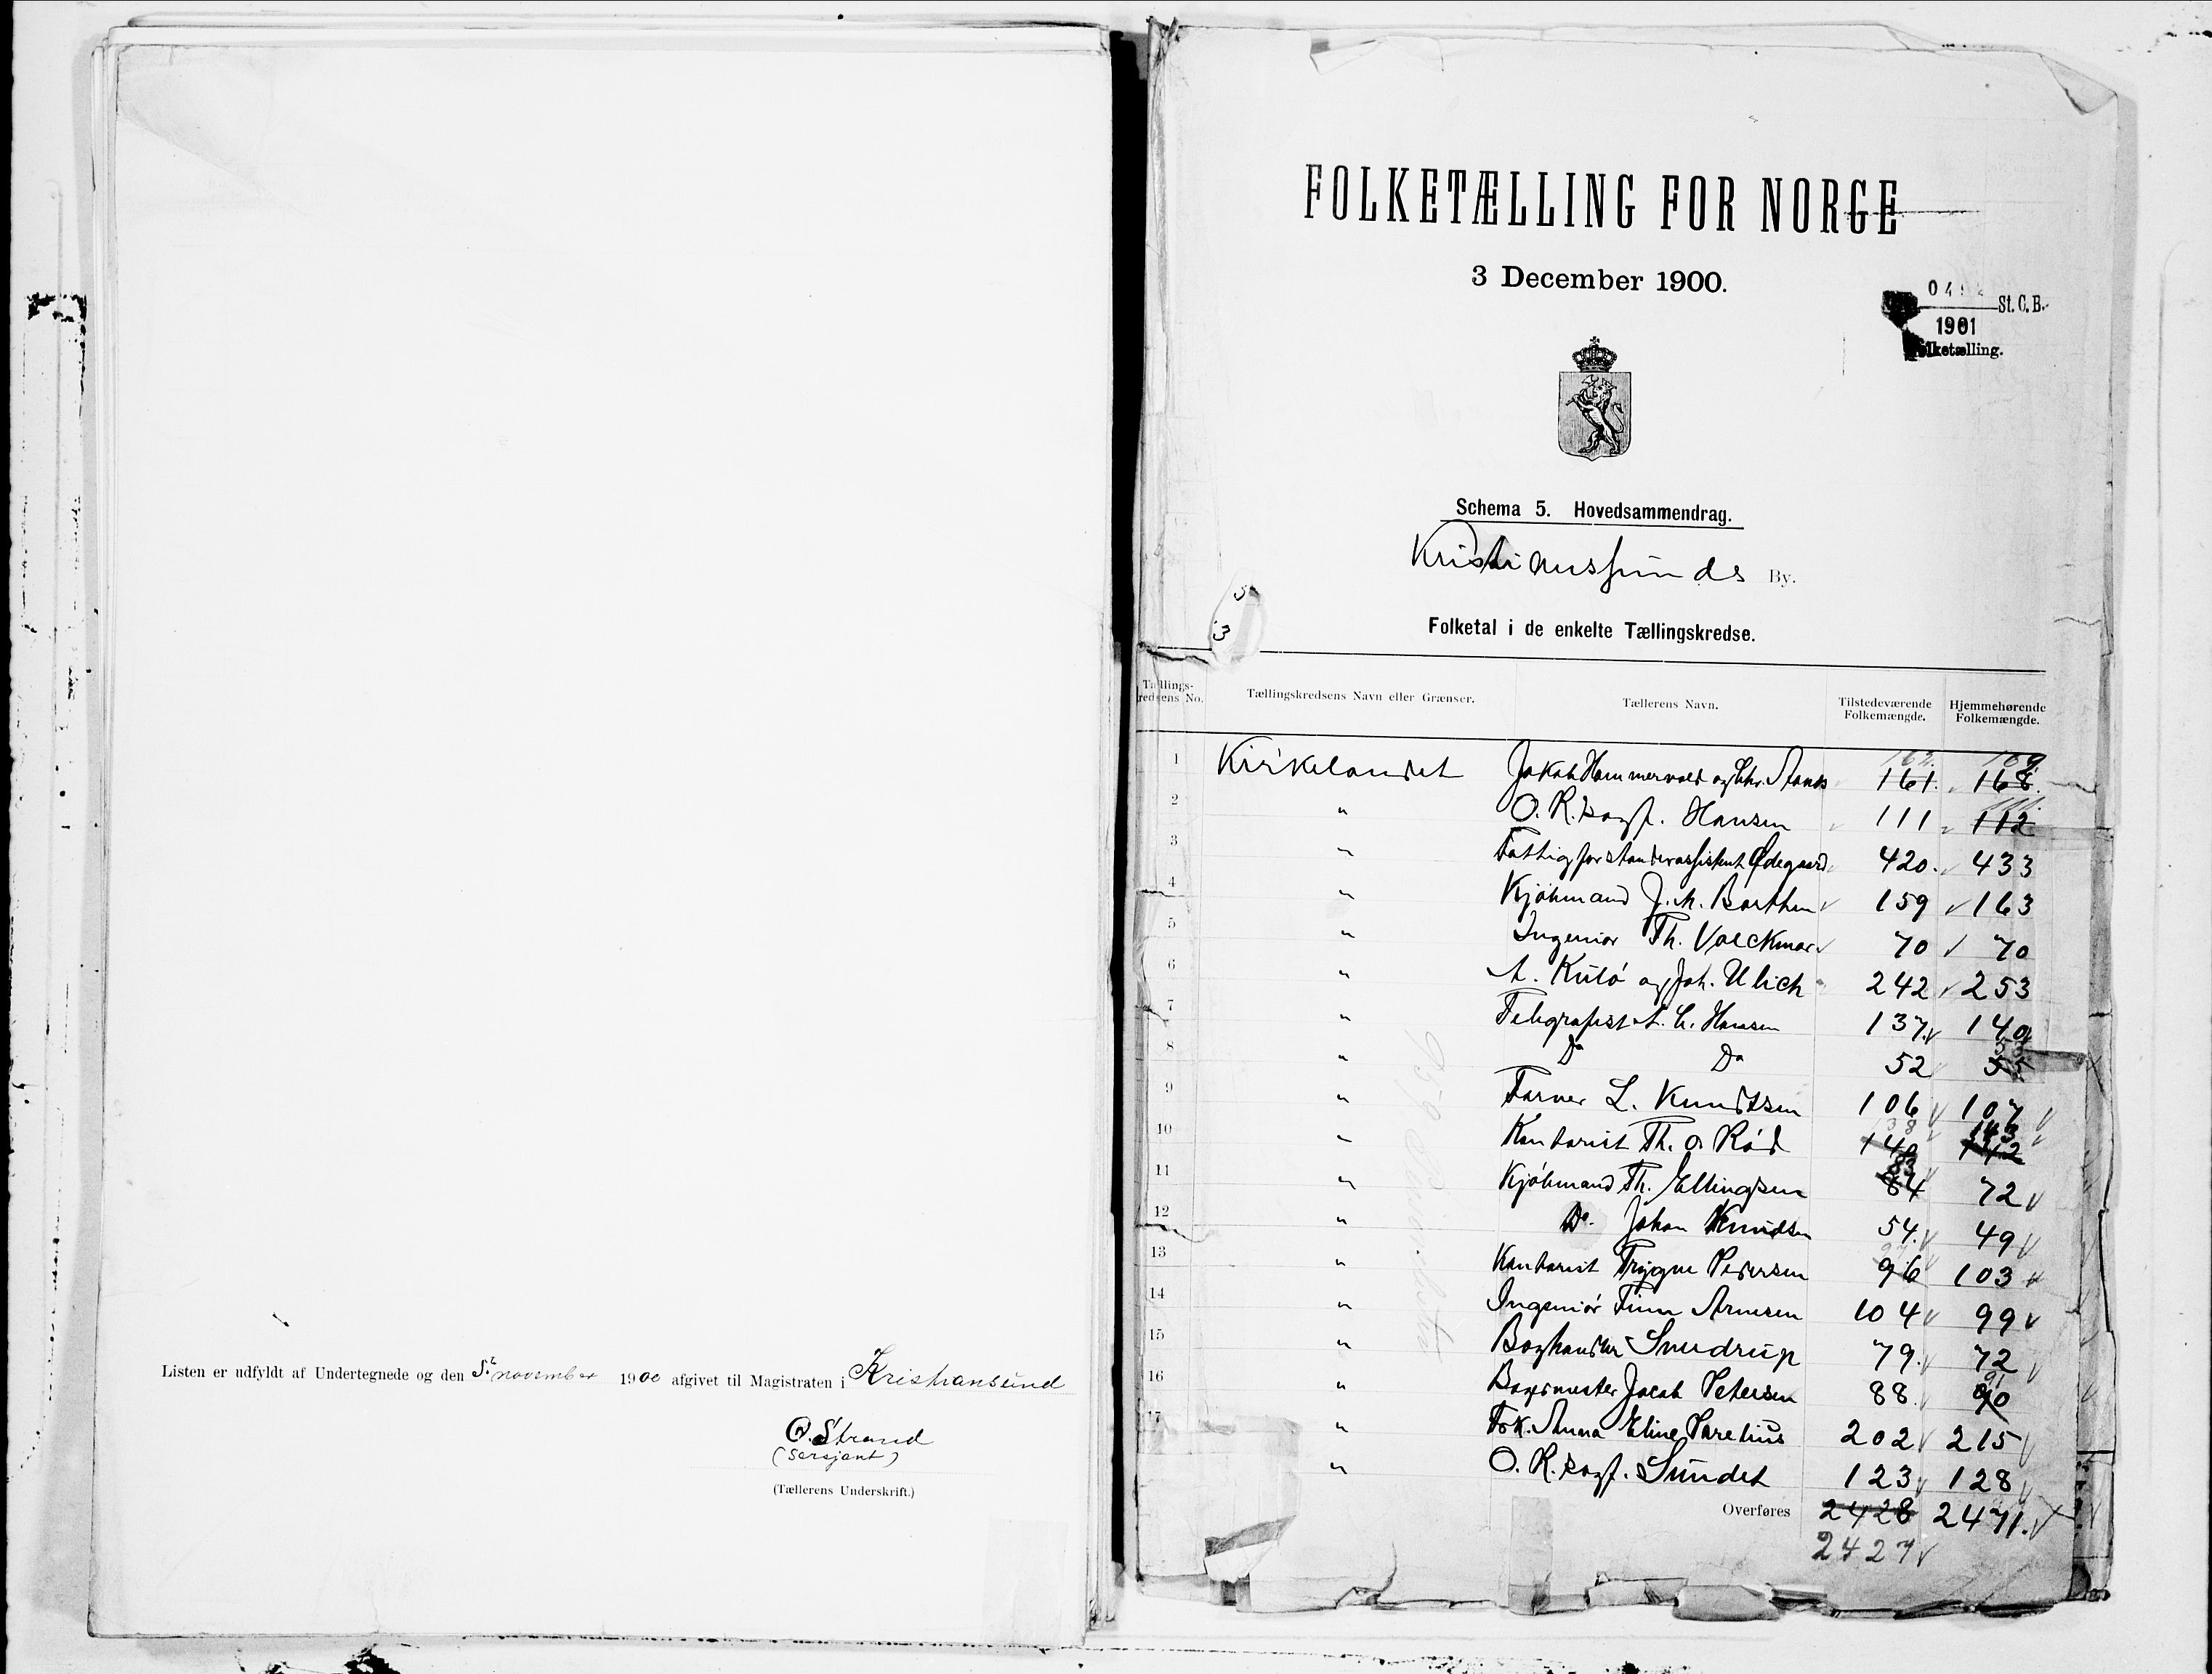 Listen er udfyldt af Undertegnede og den 5te november 1900 afgivet til Magistraten i Kristiansund
O. Strand
(Sersjant)
(Tællerens Underskrift.)
FOLKETÆLLING FOR NORGE
3 December 1900.
St. C. B.
1901
Folketælling.
Schema 5. Hovedsammendrag.
Kristianssunds By.
Folketal i de enkelte Tællingskredse.
Tællings-
kredsens No. Tællingskredsens Navn eller Grænser. Tællerens Navn. Tilstedeværende Folkemængde. Hjemmehørende Folkemængde.
162. 169.
1 Kirkelandet Jakob Hammervold og Chr. 161. 168.
111.
2 " O. R. sagf. Hansen 111 112
3 " Fattigforstanderassistent Ødegaard 420. 433
4 " Kjøbmand J. M. Barthen 159 163
5 " Ingeniør Th. Volckmar 70 70
6 " A. Kulø og Joh. Ulich 242 253
7 " Telegrafist A. C. Hansen 137 140
8 " Do Do 52 55
9 " Farver L. Knudtzen 106 107
138 143
10 " Kontorist Th. O. Rød 140 142
83
11 " Kjøbmand Th. Ellingsen 84 72
12 " Do. Johan Knudsen 54. 49
97
13 " Kontorist Trygve Pedersen 96 103
14 " Ingeniør Finn Arnesen 104 99
15 " Boghandler Smedrup 79. 72
91
16 " Bagermester Jacob Petersen 88. 90
17 " Frk. Anna Eline Parelius 202 215
" O. R. sagf. Sundet 123 128
Overføres 2428 2471.
2427